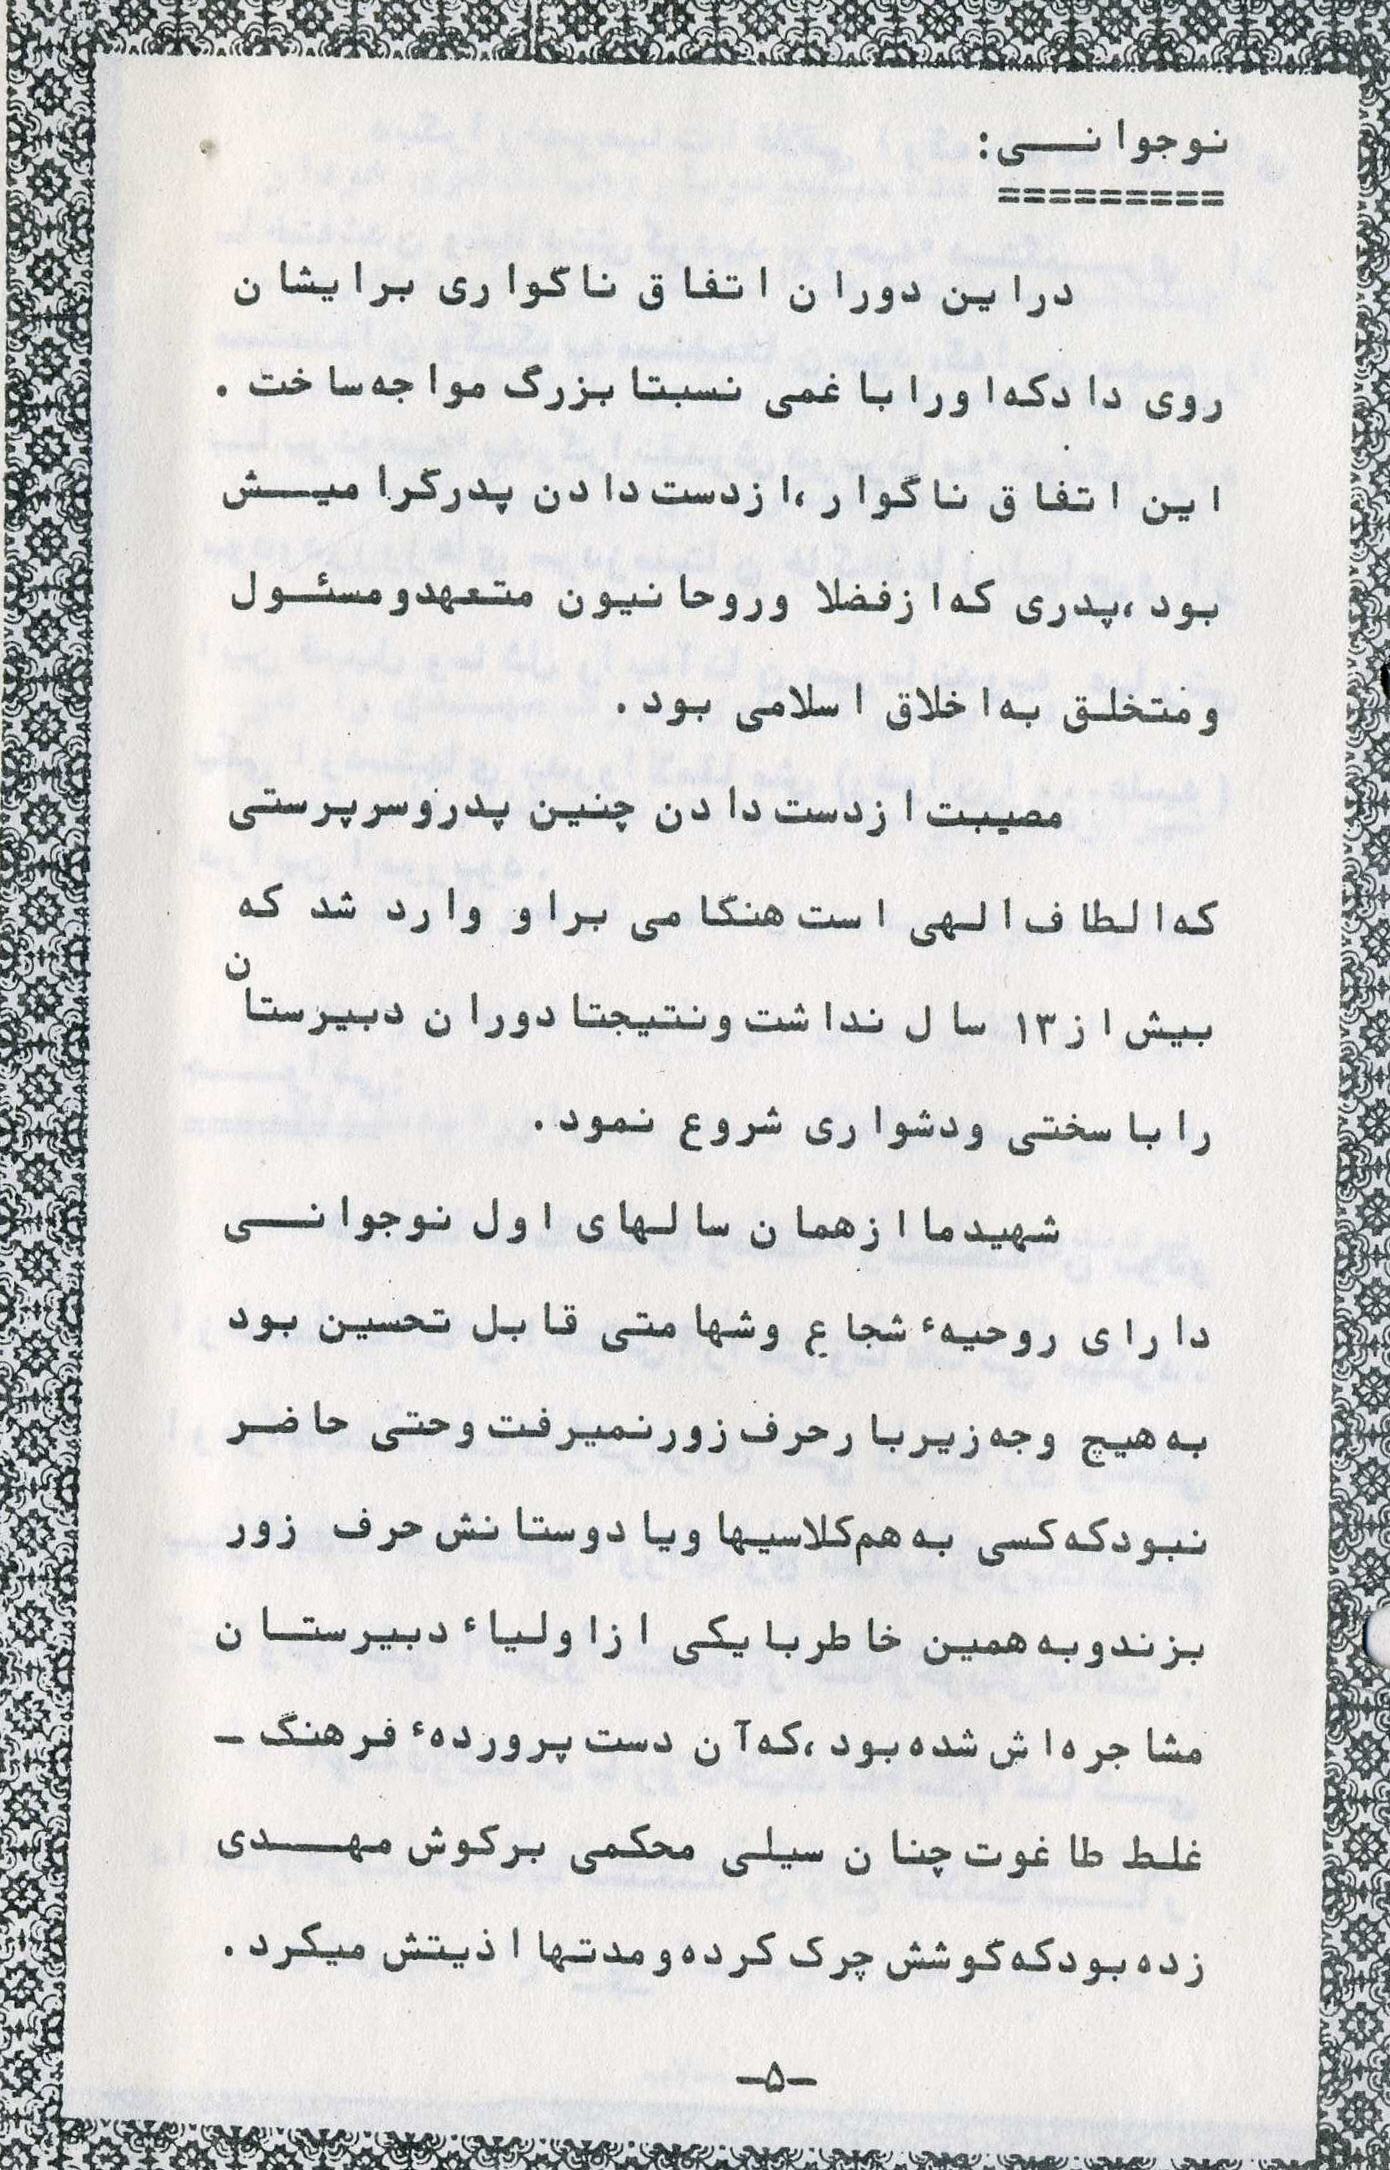 نوجوانــی:
=========
دراین دوران اتفاق ناگواری برایشان
روی دادکه اورا با غمی نسبتا بزرگ مواجه ساخت .
این اتفاق ناگوار ،ازدست دادن پدرگرامیــش
بود ،پدری که ازفضلا وروحانیون متعهدومسئــول
ومتخلـق به اخلاق اسلامی بود .
مصیبت ازدست دادن چنین پدروسرپرستی
که الطاف الهی است هنگامی براو وارد شد که
بیش از۱۳ سال نداشت ونتیجتا دوران دبیرستان
را با سختی ودشواری شروع نمود .
شهیدما ازهمان سالهای اول نوجوانــی
دارای روحیهٔ شجاع وشهامتی قابل تحسین بود
به هیچ وجه زیربارحرف زورنمیرفت وحتی حاضـر
نبودکه کسی به هم‌کلاسیها ویا دوستانش حرف زور
بزندوبه همین خاطربایکی ازاولیاء دبیرستــان
مشاجره‌اش شده بود ،که آن دست پروردهٔ فرهنگ ـ
غلـط طاغوت چنان سیلـی محکمی برکوش مهــدی
زده بودکه گوشش چرک کرده ومدتها اذیتش میکرد .
ـ۵ـ